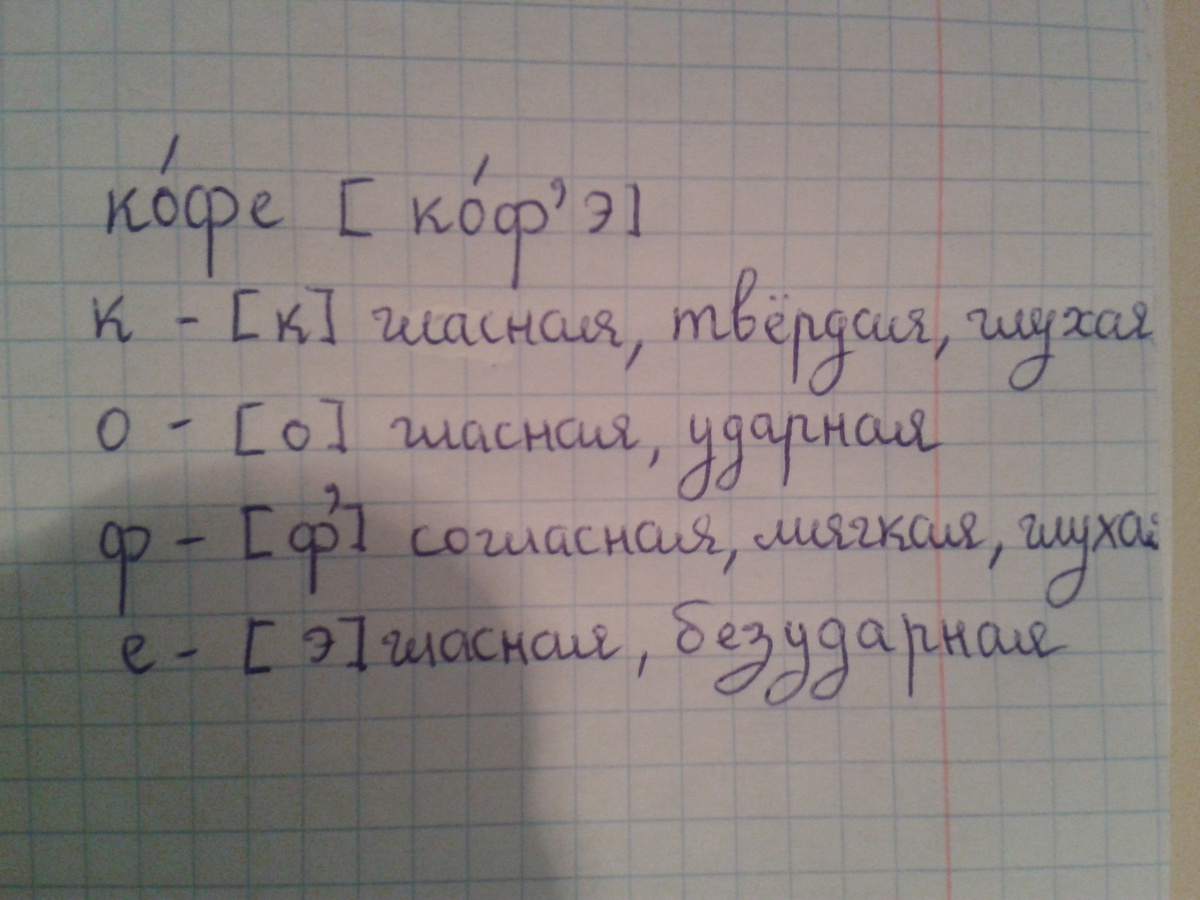 ко́фе [ко́ф’э]
к - [к] гласная, твёрдая, глухая
о - [о] гласная, ударная
ф - [ф’] согласная, мягкая, глухая
е - [э] гласная, безударная